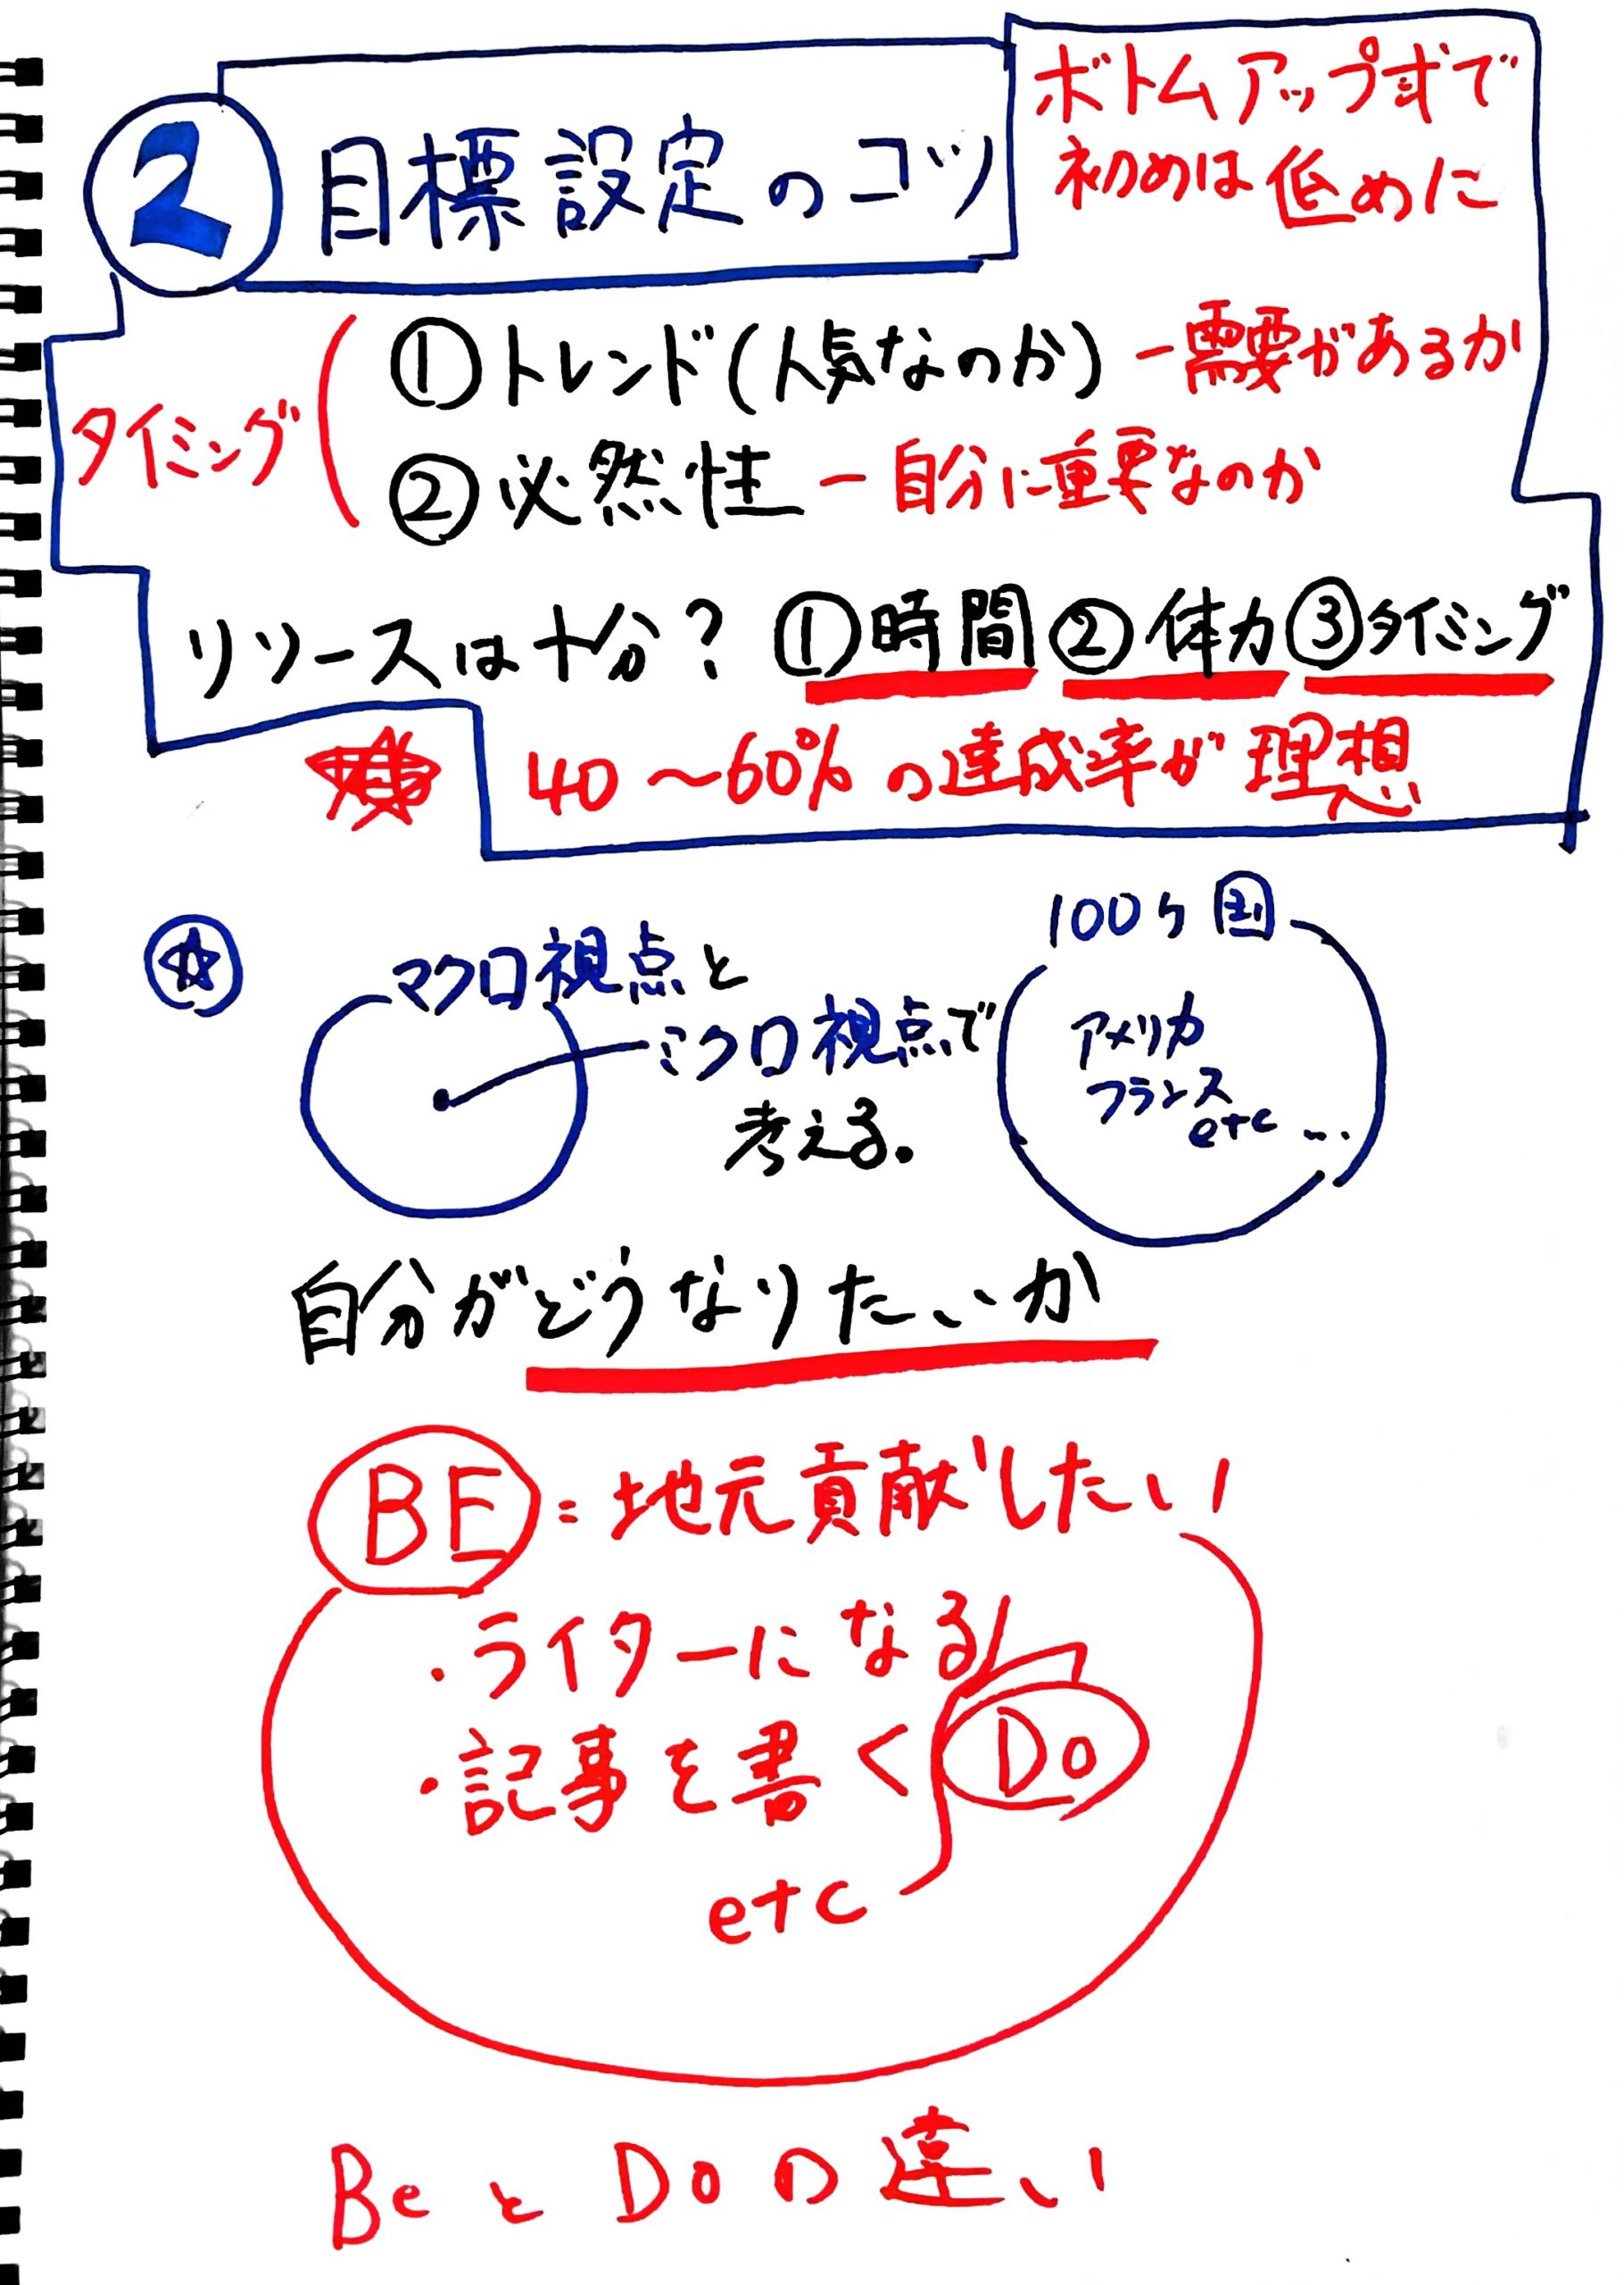 2 目標設定のコツ
ボトムアップ式で
初めは低めに
タイミング
①トレンド(人気なのか)ー需要があるか
②必然性ー自分に重要なのか
リソースは十分? ①時間 ②体力 ③タイミング
40〜60%の達成率が理想
マクロ視点と
ミクロ視点で
考える。
100ヶ国
アメリカ
フランス
etc…
自分がどうなりたいか
BE = 地元貢献したい
・ライターになる
・記事を書く
Do
etc
BeとDoの違い